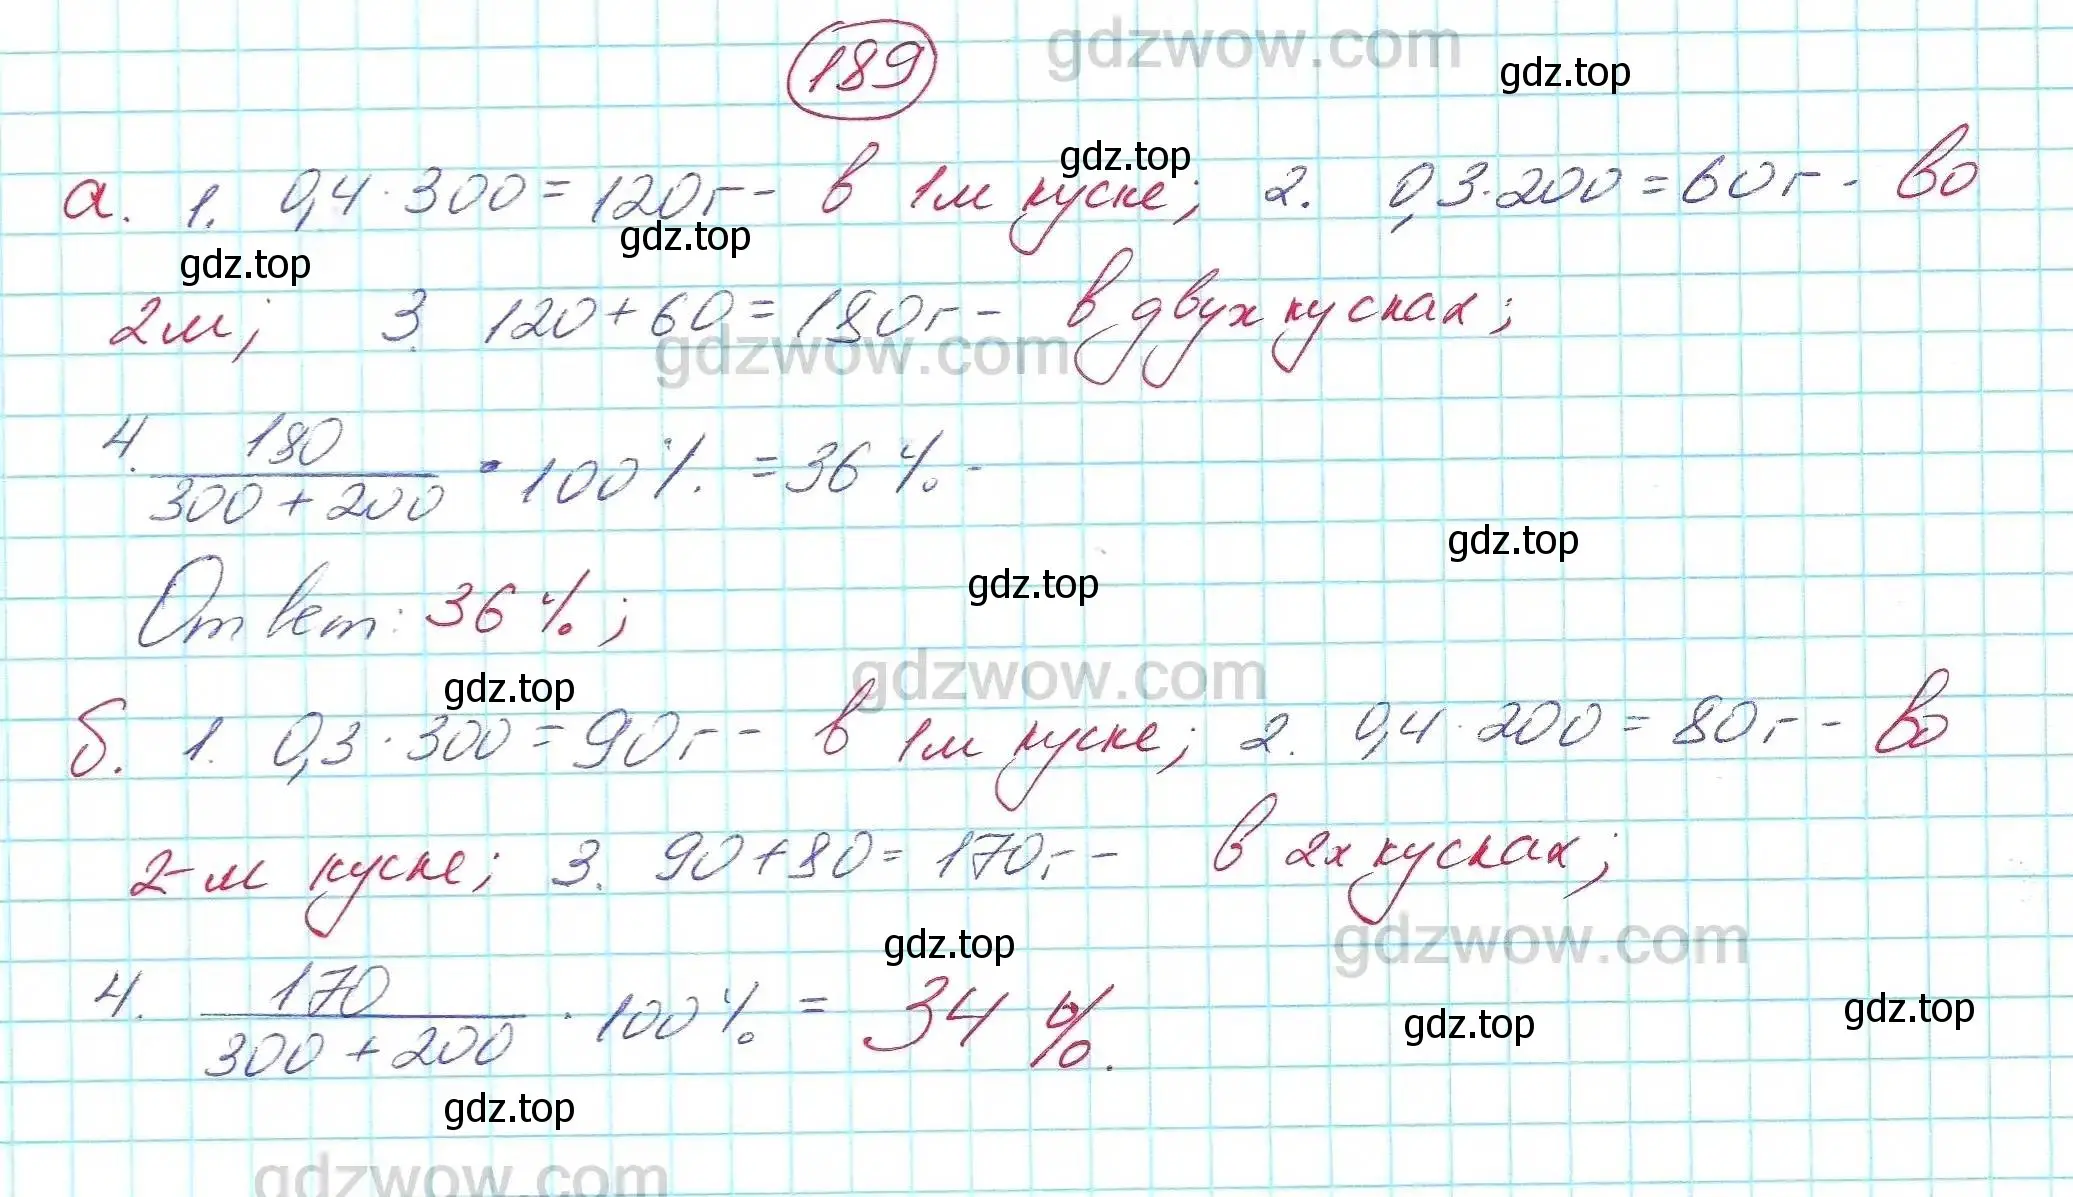 189
gdzwow.com
gdz.top
gdz.top
а. 1. 0,4 · 300 = 120 г - в 1м куске; 2. 0,3 · 200 = 60 г - во
gdz.top
gdz.top
2м; 3. 120 + 60 = 180 г - в двух кусках;
gdzwow.com
4. 180 / (300 + 200) · 100 % = 36 % -
gdz.top
gdz.top
Ответ: 36 %;
gdzwow.com
gdz.top
б. 1. 0,3 · 300 = 90 г - в 1м куске; 2. 0,4 · 200 = 80 г - во
2-м куске; 3. 90 + 80 = 170 г - в 2х кусках;
gdz.top
gdzwow.com
4. 170 / (300 + 200) · 100 % = 34 %.
gdz.top
gdz.top
gdz.top
gdzwow.com